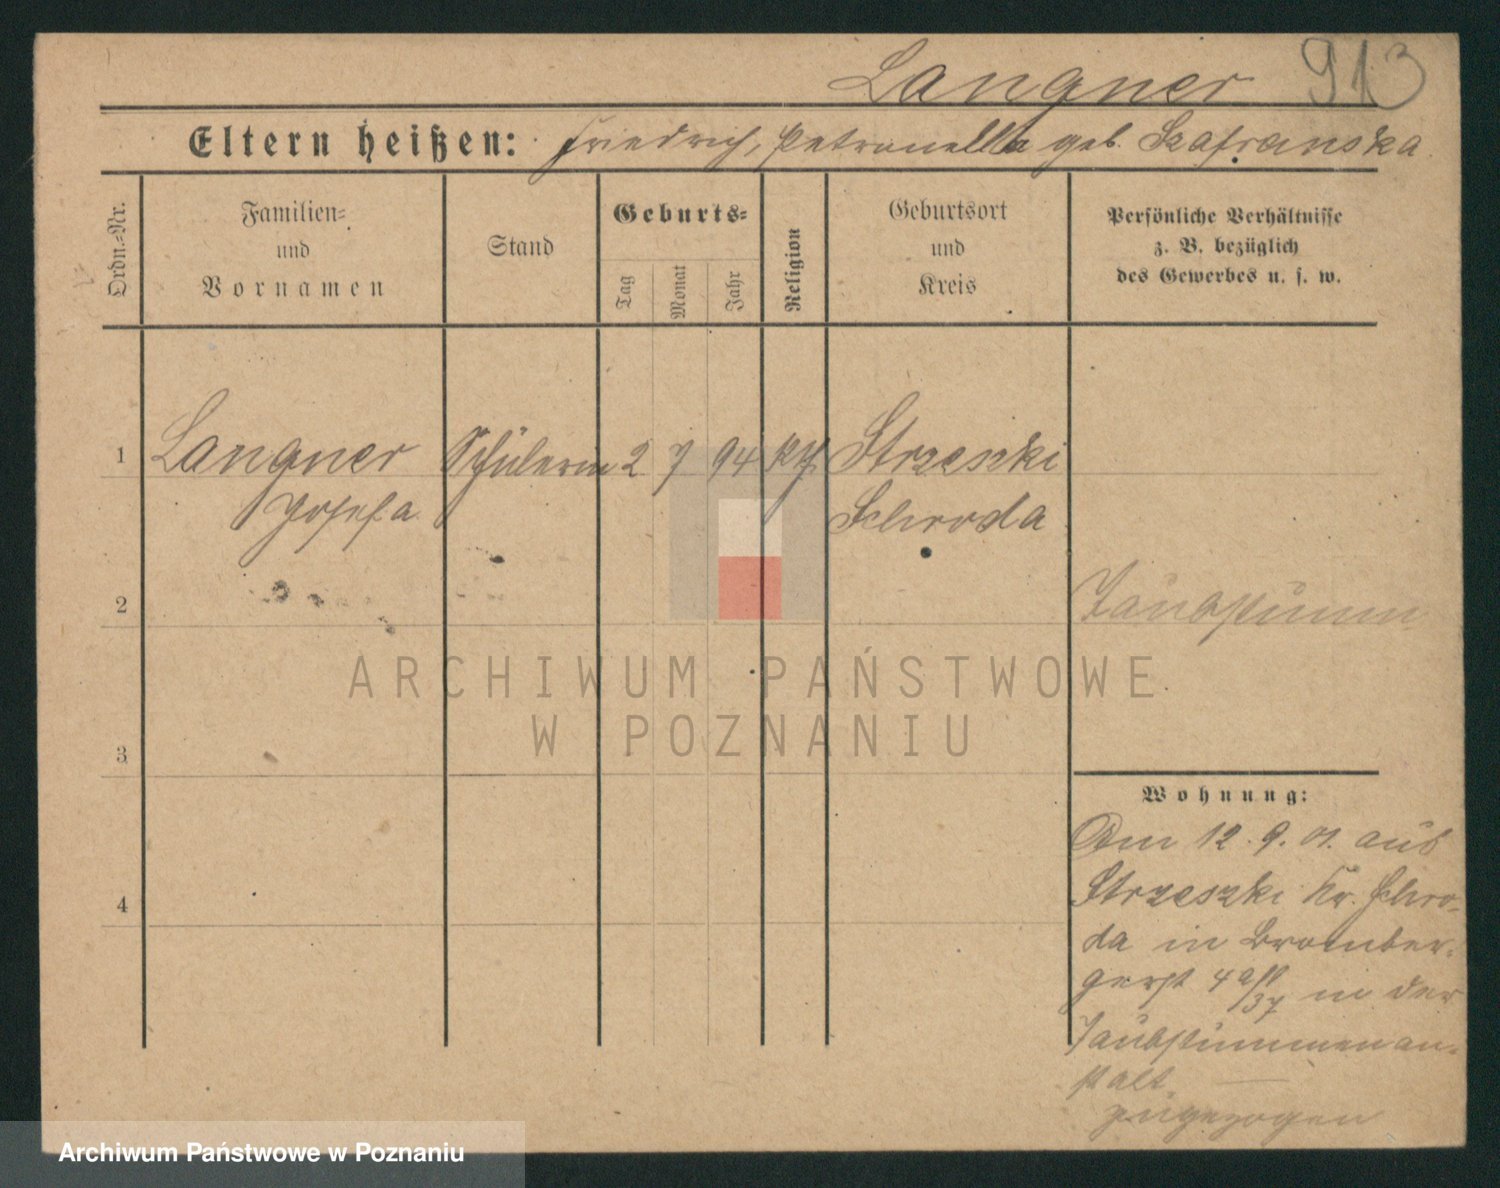 Langner 913
Eltern heißen: Friedrich, Petronella geb. Szafranska
Ordn.=Nr.
Familien=
und
Vornamen
Stand
Geburts=
Tag
Monat
Jahr
Religion
Geburtsort
und
Kreis
Persönliche Verhältnisse
z. B. bezüglich
des Gewerbes u. s. w.
1 Langner Schülerin 2 7 94 kth Strzeszki
Josefa Schroda
2 Taubstumm
3
4
Wohnung:
Am 12. 9. 01. aus
Strzeszki Kr. Schro-
da in Bromber-
gerst 4 in der
Taubstummenan-
stalt
zugezogen
ARCHIWUM PAŃSTWOWE
W POZNANIU
Archiwum Państwowe w Poznaniu